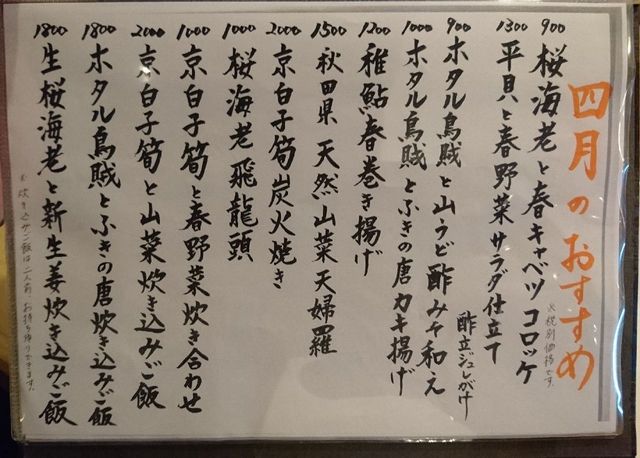 四月のおすすめ
※税別価格です。
900 桜海老と春キャベツコロッケ
1300 平貝と春野菜サラダ仕立て
酢立ジュレがけ
900 ホタル烏賊と山うど酢みそ和え
1000 ホタル烏賊とふきの唐カキ揚げ
1200 稚鮎春巻き揚げ
1500 秋田県 天然山菜天婦羅
2000 京白子筍炭火焼き
1000 桜海老飛龍頭
1000 京白子筍と春野菜炊き合わせ
2000 京白子筍と山菜炊き込みご飯
1800 ホタル烏賊とふきの唐炊き込みご飯
1800 生桜海老と新生姜炊き込みご飯
※炊き込みご飯は二人前 お持ち帰りできます。